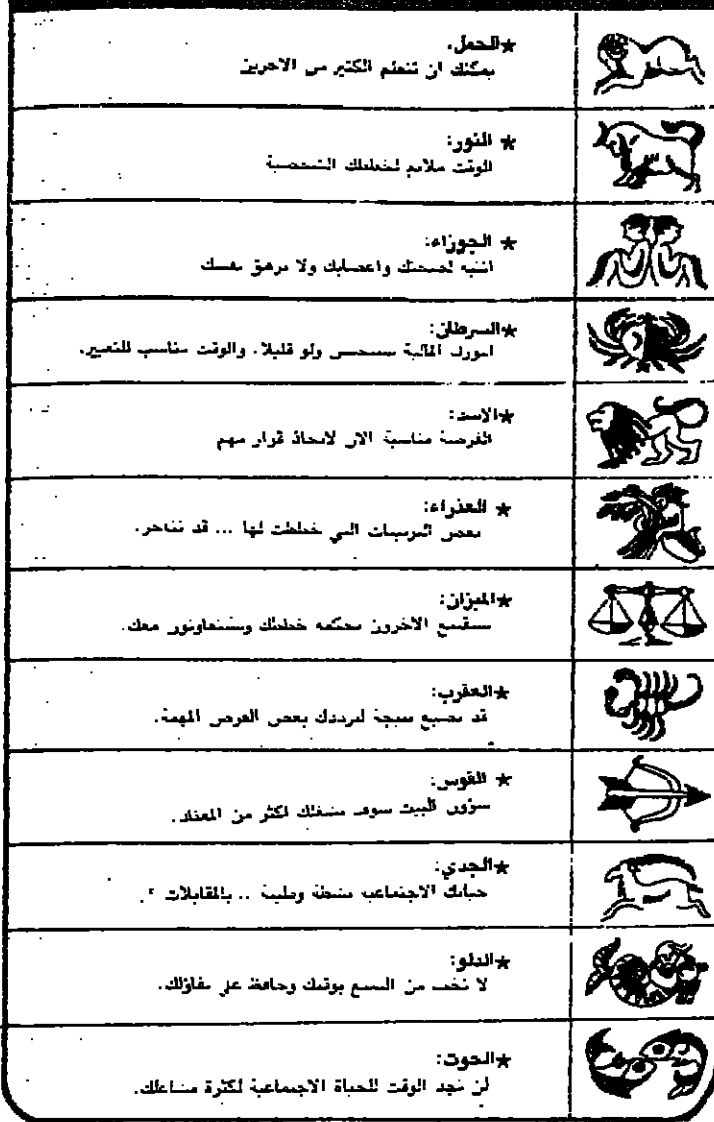 ★الحمل.
يمكنك ان تتعلم الكثير من الاخرين
★ الثور:
الوقت ملائم لخططك الشخصية
★ الجوزاء:
انتبه لصحتك واعصابك ولا ترهق نفسك
★السرطان:
امورك المالية ستتحسن ولو قليلا. والوقت مناسب للتغيير.
★الاسد:
الفرصة مناسبة الان لاتخاذ قرار مهم
★ العذراء:
بعض الترتيبات التي خططت لها ... قد تتاخر.
★الميزان:
سيقتنع الآخرون بحكمة خططك وسيتعاونون معك.
★العقرب:
قد تضيع نتيجة لترددك بعض الفرص المهمة.
★ القوس:
شؤون البيت سوف تشغلك اكثر من المعتاد.
★الجدي:
حياتك الاجتماعية نشطة ومليئة .. بالمقابلات
★الدلو:
لا تخف من بوقتك وحافظ على تفاؤلك.
★الحوت:
لن تجد الوقت للحياة الاجتماعية لكثرة مشاغلك.